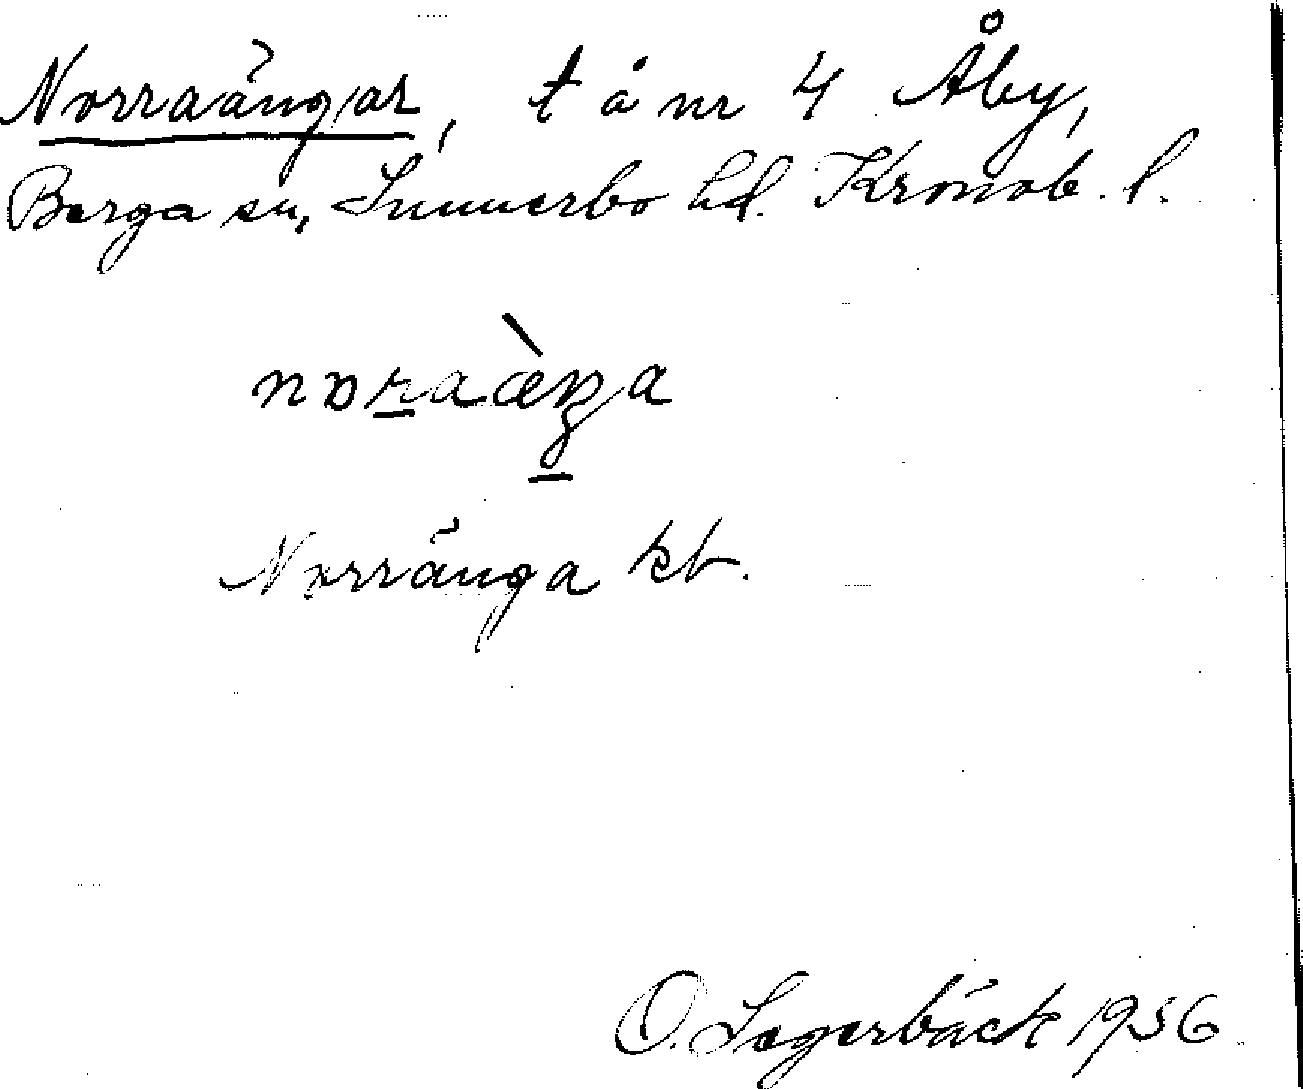 Norraängar, t å nr 4 Åby,
Berga sn, Sunnerbo hd. Kronob. l.
nɒraæ̀ŋa
Norränga kt.
O. Lagerbäck 1956